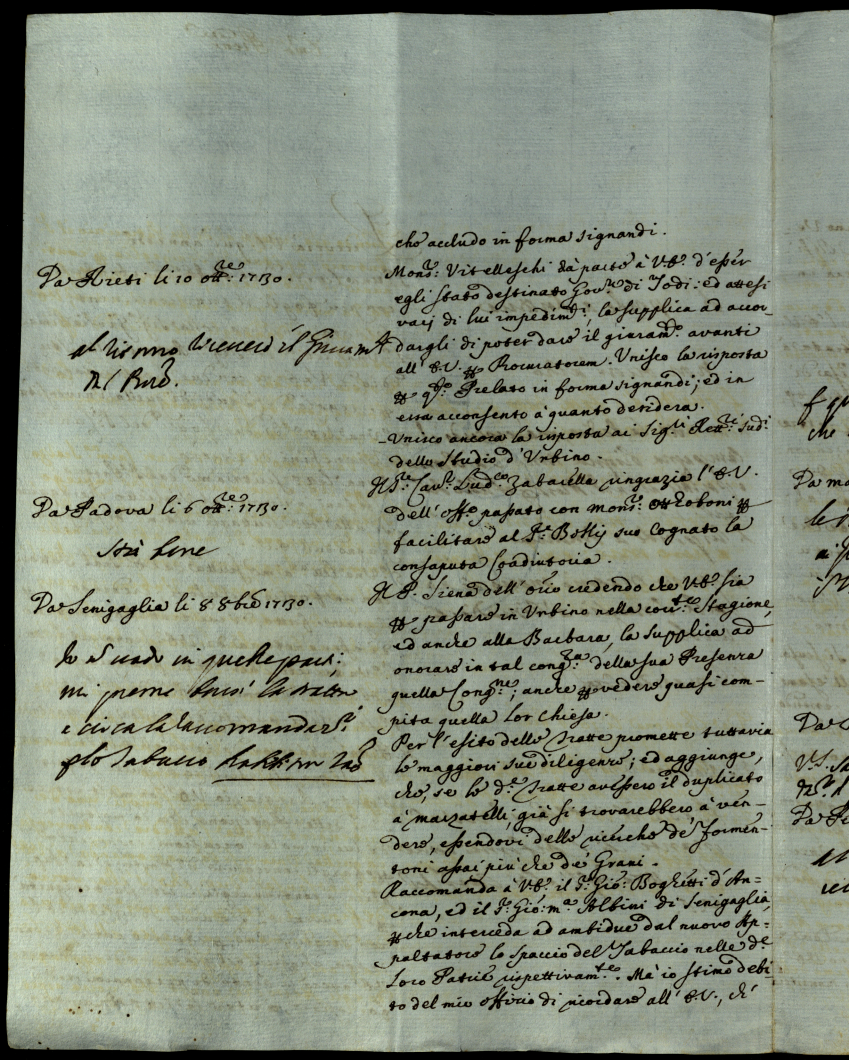 che accludo in forma signandi.
Da Rieti li 10 ott.re 1730.
al ritorno riceverò il Giuram.to
Mons.r Vitelleschi dà parte à V.E. d'esser
egli stato destinato Gov.re di Todi: ed attesi
varij di lui impedim.ti, la supplica ad accor-
dargli di poter dare il giuram.to avanti
all'E.V. p Procuratorem. Unisco la risposta
p q.to Prelato in forma signandi; ed in
essa acconsento à quanto desidera.
Unisco ancora la risposta ai Sig.ri Rett.ri sud.i
dello Studio d'Urbino.
Da Padova li 6 ott.re 1730.
Stà bene
Il S.r Cav.r Lud.co Zabarella ringrazia l'E.V.
dell'off.o passato con mons.r Ottoboni p
facilitare al S.r suo Cognato la
consaputa Coadiutoria.
Da Senigaglia li 8 8bre 1730.
Io vado in quelle parti;
mi preme bensì la tratta
e circa la raccomandaz.e
p lo Tabacco
Il P. Siena dell'Orio credendo che V.E. sia
p passare in Urbino nella corr.te Stagione,
ed anche alla Barbara, la supplica ad
onorare in tal cong.ra della sua Presenza
quella Cong.ne; anche p vedere quasi com-
pita quella lor Chiesa.
Per l'esito delle Tratte promette tuttavia
le maggiori sue diligenze; ed aggiunge,
che, se le d.e tratte avessero il duplicato
à marzatelli, già si trovarebbero à ven-
dere, essendovi delle ricerche de' formen-
toni assai più che de' Grani.
Raccomanda à V.E. il S.r Gio: Boghetti d'An-
cona, ed il S.r Gio: m.a Albini di Senigaglia,
p che interceda ad ambidue dal nuovo Ap-
paltatore lo spaccio del Tabaccio nelle d.e
Loro Patrie rispettivam.te. Mà io stimo debi-
to del mio offizio di ricordare all'E.V., ch'
che
Da